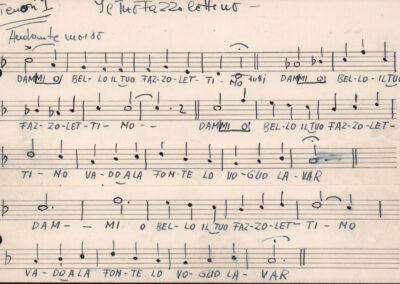 Tenori I Il tuo fazzolettino -
Andante mosso
DAMMI O BEL-LO IL TUO FAZ-ZO-LET-TI-NO tutti DAMMI O BEL-LO IL TUO
FAZ-ZO-LET-TI-NO- - DAMMI O BEL-LO IL TUO FAZ-ZO-LET-
TI-NO VA-DO ALA FON-TE LO VO-GLIO LA-VAR
DAM- - MI O BEL-LO IL TUO FAZ-ZO-LET-TI-NO
VA-DO ALA FON-TE LO VO-GLIO LA-VAR